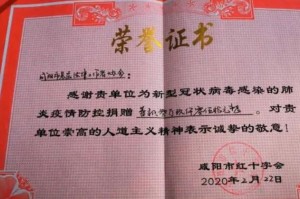 荣誉证书
感谢贵单位为新型冠状病毒感染的肺
炎疫情防控捐赠 对贵
单位崇高的人道主义精神表示诚挚的敬意！
咸阳市红十字会
2020年2月22日